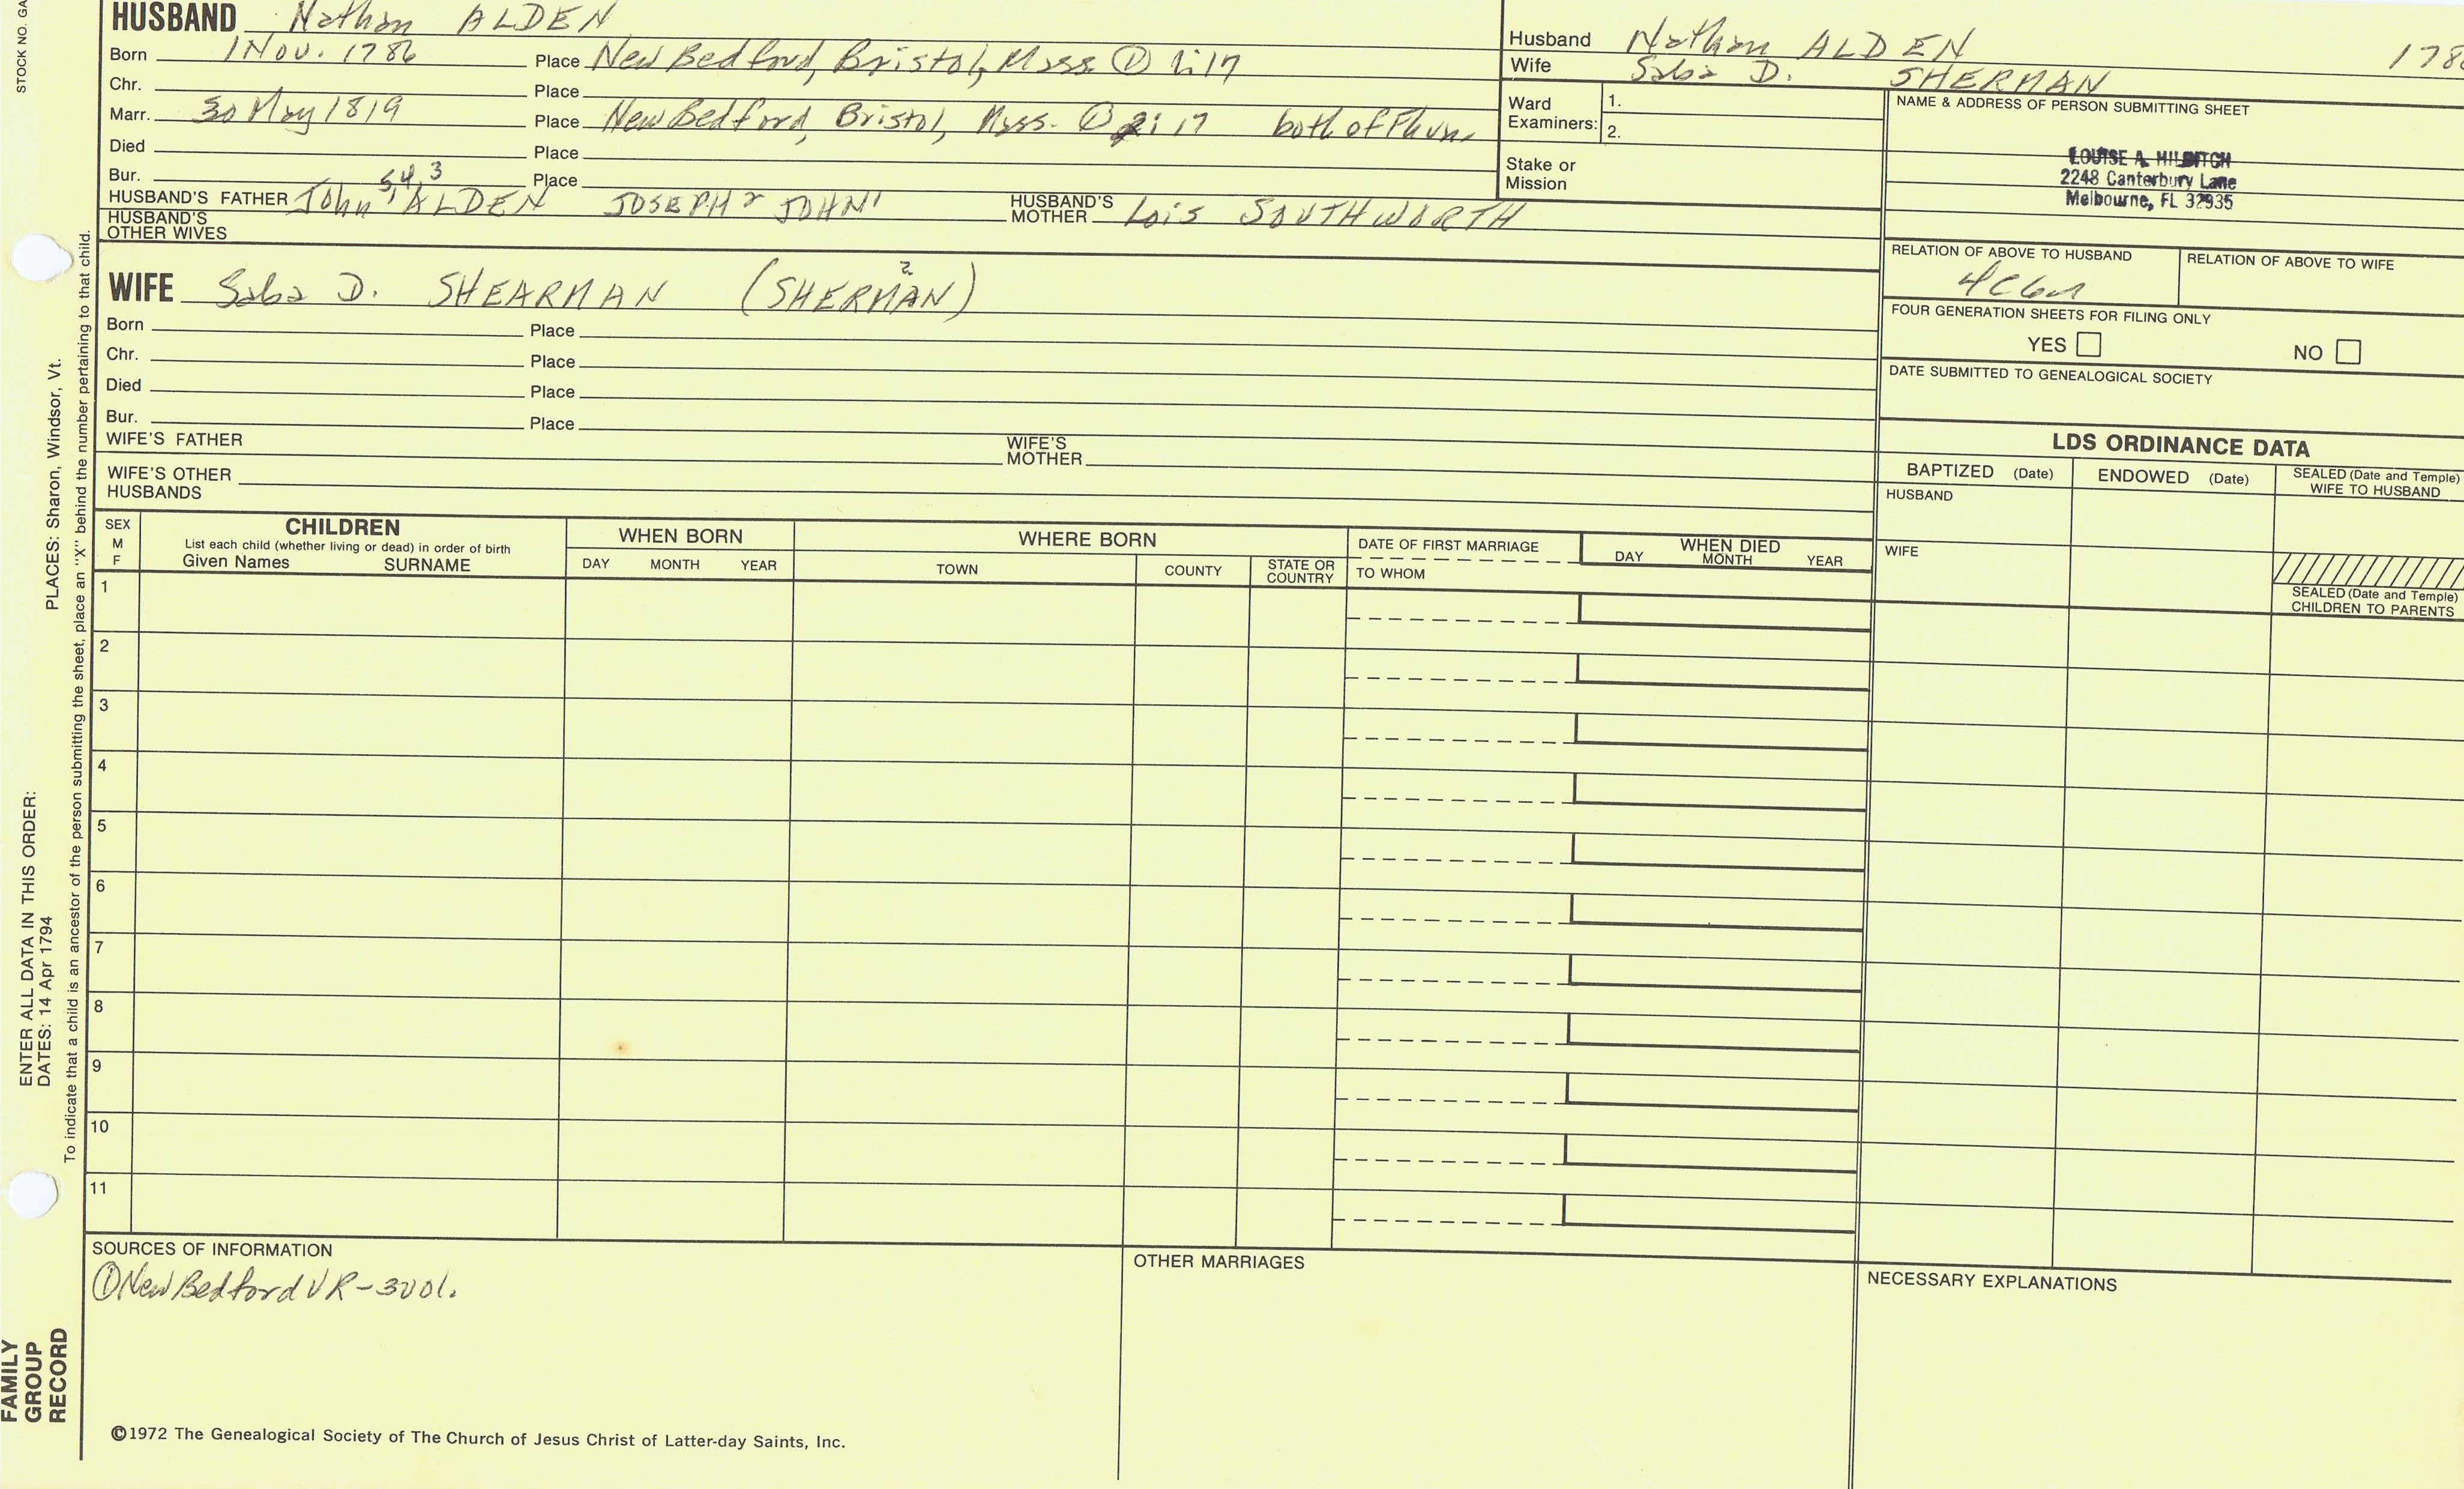 STOCK NO. GA
HUSBAND Nathan ALDEN
Born 1 Nov. 1786 Place New Bedford, Bristol, Mass. ① 1:17
Chr. Place
Marr. 30 May 1819 Place New Bedford, Bristol, Mass. ① 2:17 both of
Died Place
Bur. Place
HUSBAND'S FATHER John 5,4,3 ALDEN JOSEPH 2 JOHN 1 HUSBAND'S MOTHER Lois SOUTHWORTH
HUSBAND'S OTHER WIVES
Husband Nathan ALDEN 178
Wife Saba D. SHERMAN
Ward Examiners: 1.
2.
Stake or Mission
NAME & ADDRESS OF PERSON SUBMITTING SHEET
LOUISE A. HILDITCH
2248 Canterbury Lane
Melbourne, FL 32935
RELATION OF ABOVE TO HUSBAND RELATION OF ABOVE TO WIFE
4C6r
FOUR GENERATION SHEETS FOR FILING ONLY
YES NO
DATE SUBMITTED TO GENEALOGICAL SOCIETY
WIFE Saba D. SHEARMAN (SHERMAN) ?
Born Place
Chr. Place
Died Place
Bur. Place
WIFE'S FATHER WIFE'S MOTHER
WIFE'S OTHER HUSBANDS
LDS ORDINANCE DATA
BAPTIZED (Date) ENDOWED (Date) SEALED (Date and Temple) WIFE TO HUSBAND
HUSBAND
WIFE
SEALED (Date and Temple) CHILDREN TO PARENTS
SEX M F
CHILDREN
List each child (whether living or dead) in order of birth
Given Names SURNAME
WHEN BORN
DAY MONTH YEAR
WHERE BORN
TOWN COUNTY STATE OR COUNTRY
DATE OF FIRST MARRIAGE
TO WHOM
WHEN DIED
DAY MONTH YEAR
1
2
3
4
5
6
7
8
9
10
11
SOURCES OF INFORMATION
① New Bedford VR-3vol.
OTHER MARRIAGES
NECESSARY EXPLANATIONS
©1972 The Genealogical Society of The Church of Jesus Christ of Latter-day Saints, Inc.
FAMILY GROUP RECORD
ENTER ALL DATA IN THIS ORDER:
DATES: 14 Apr 1794 PLACES: Sharon, Windsor, Vt.
To indicate that a child is an ancestor of the person submitting the sheet, place an "X" behind the number pertaining to that child.